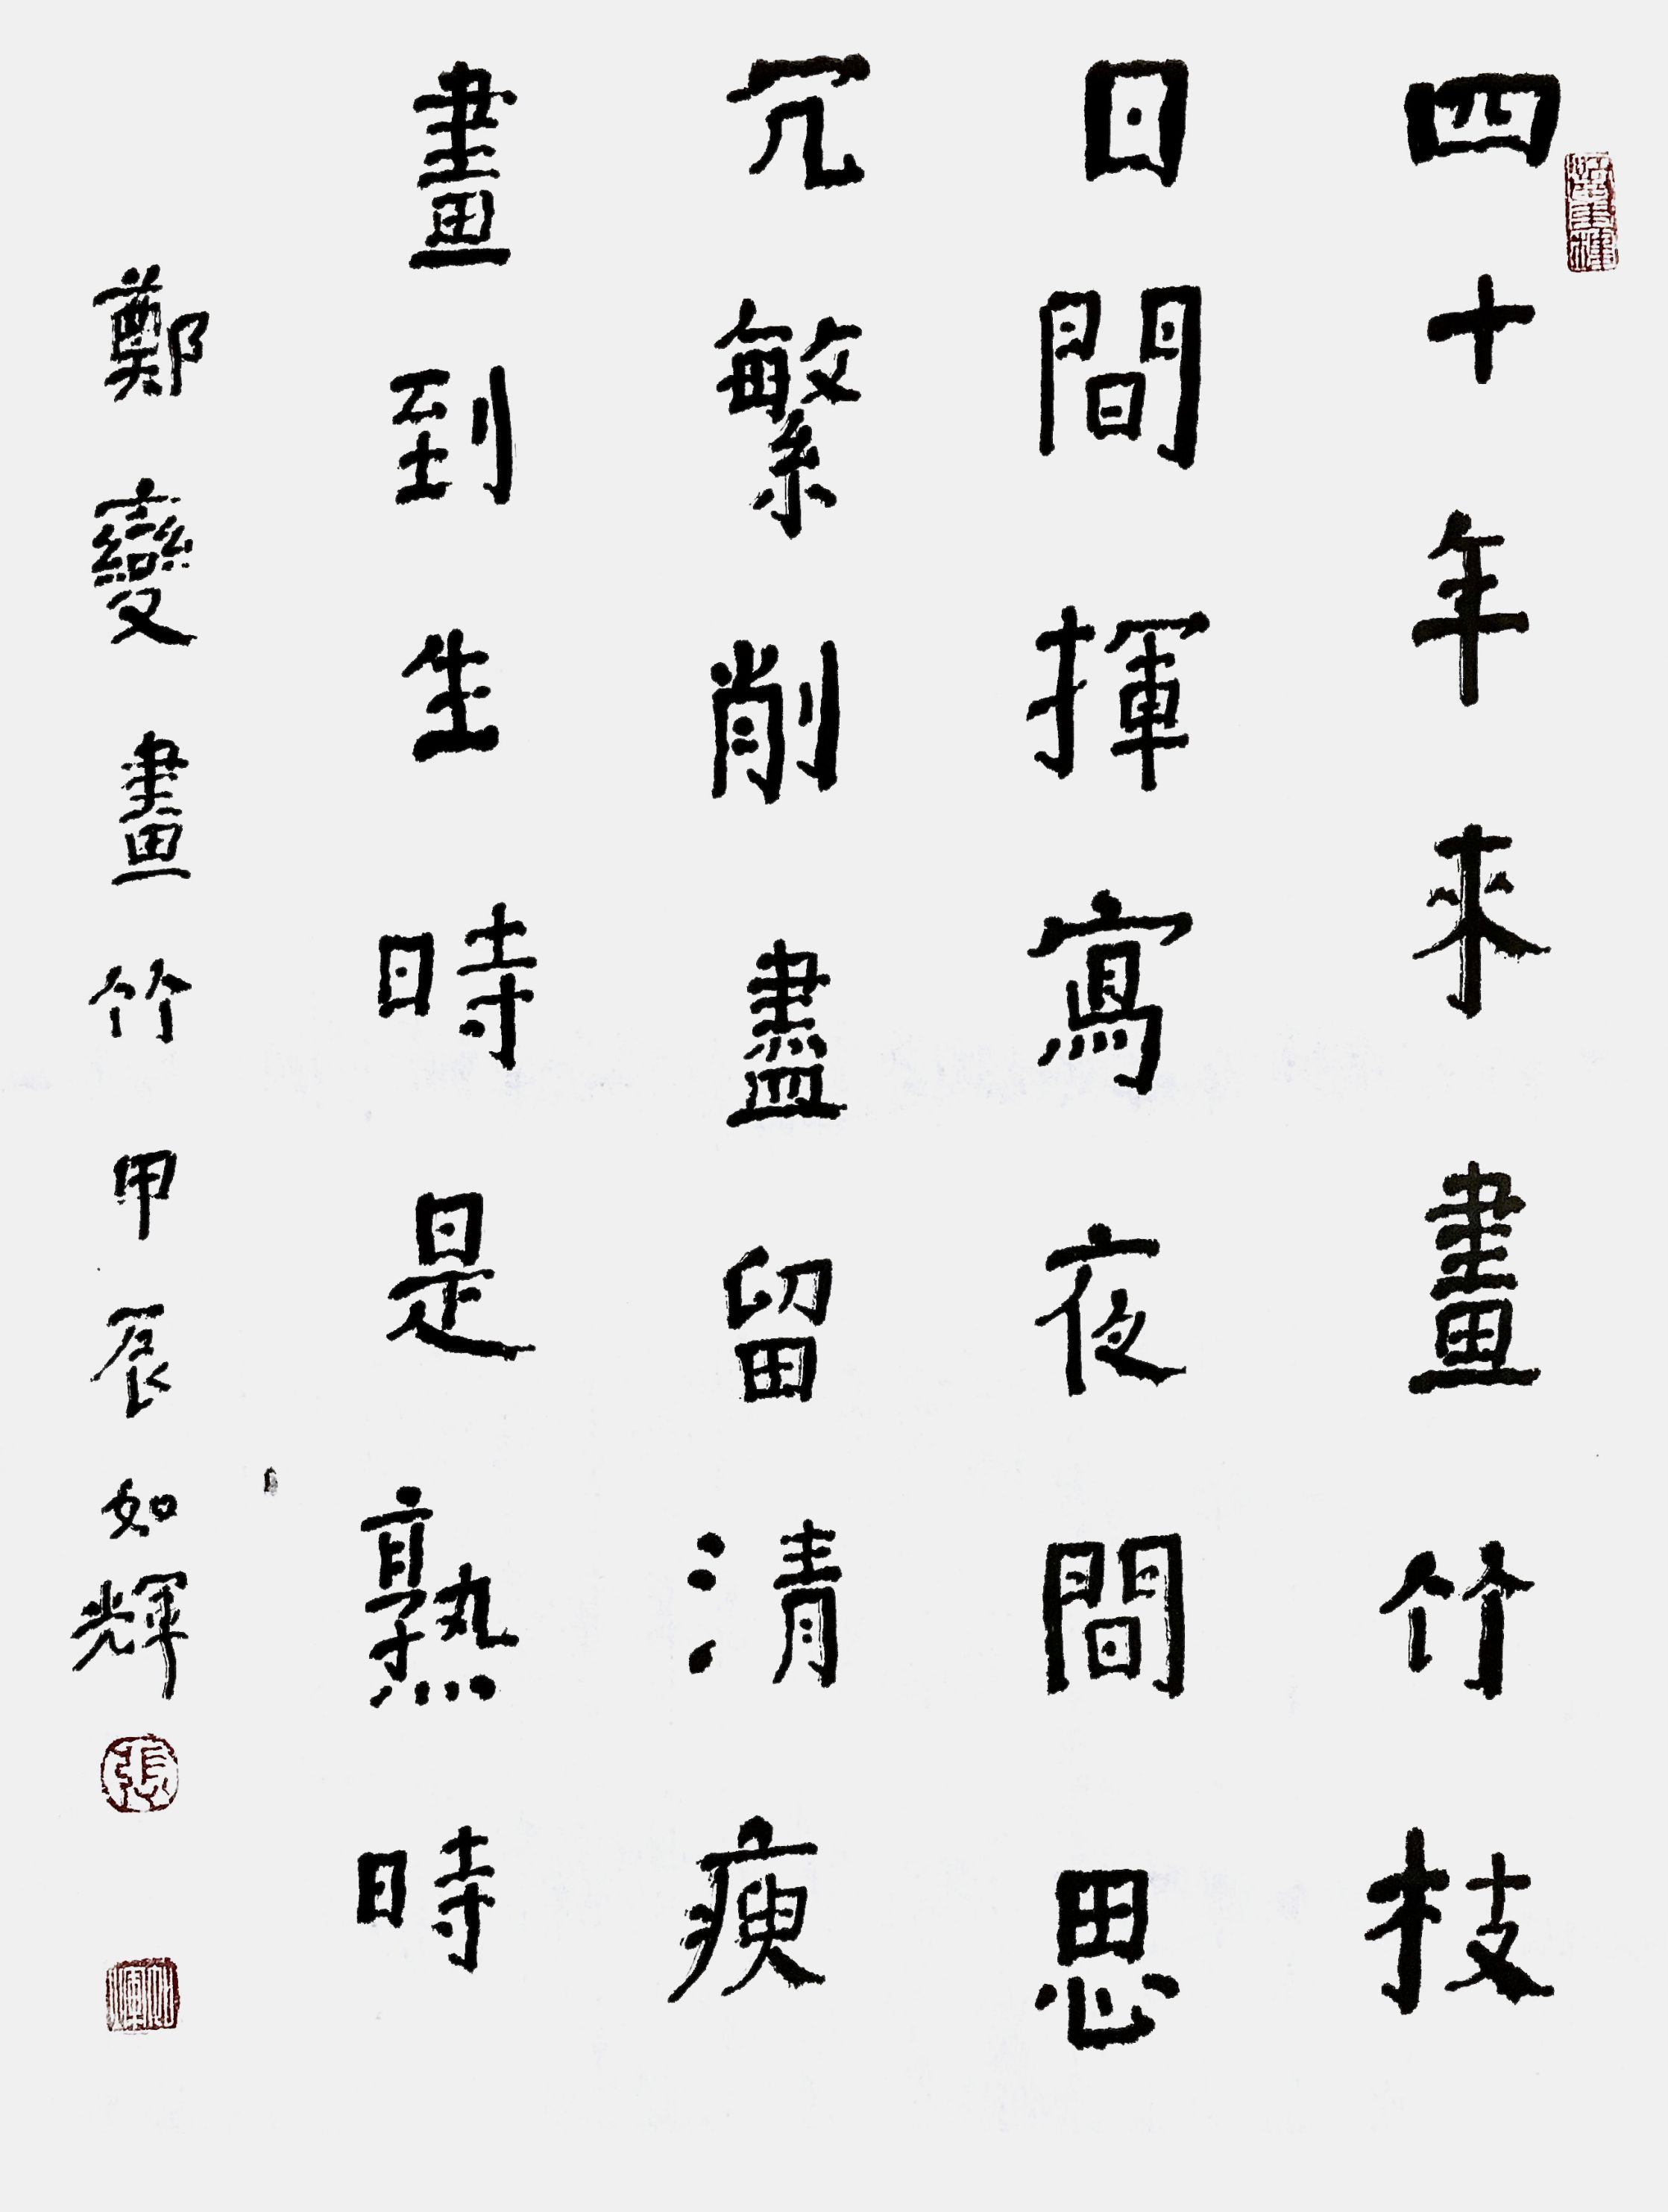 四十年來畫竹枝
日間揮寫夜間思
冗繁削盡留清瘦
畫到生時是熟時
鄭變畫竹 甲辰 如輝
張
如輝